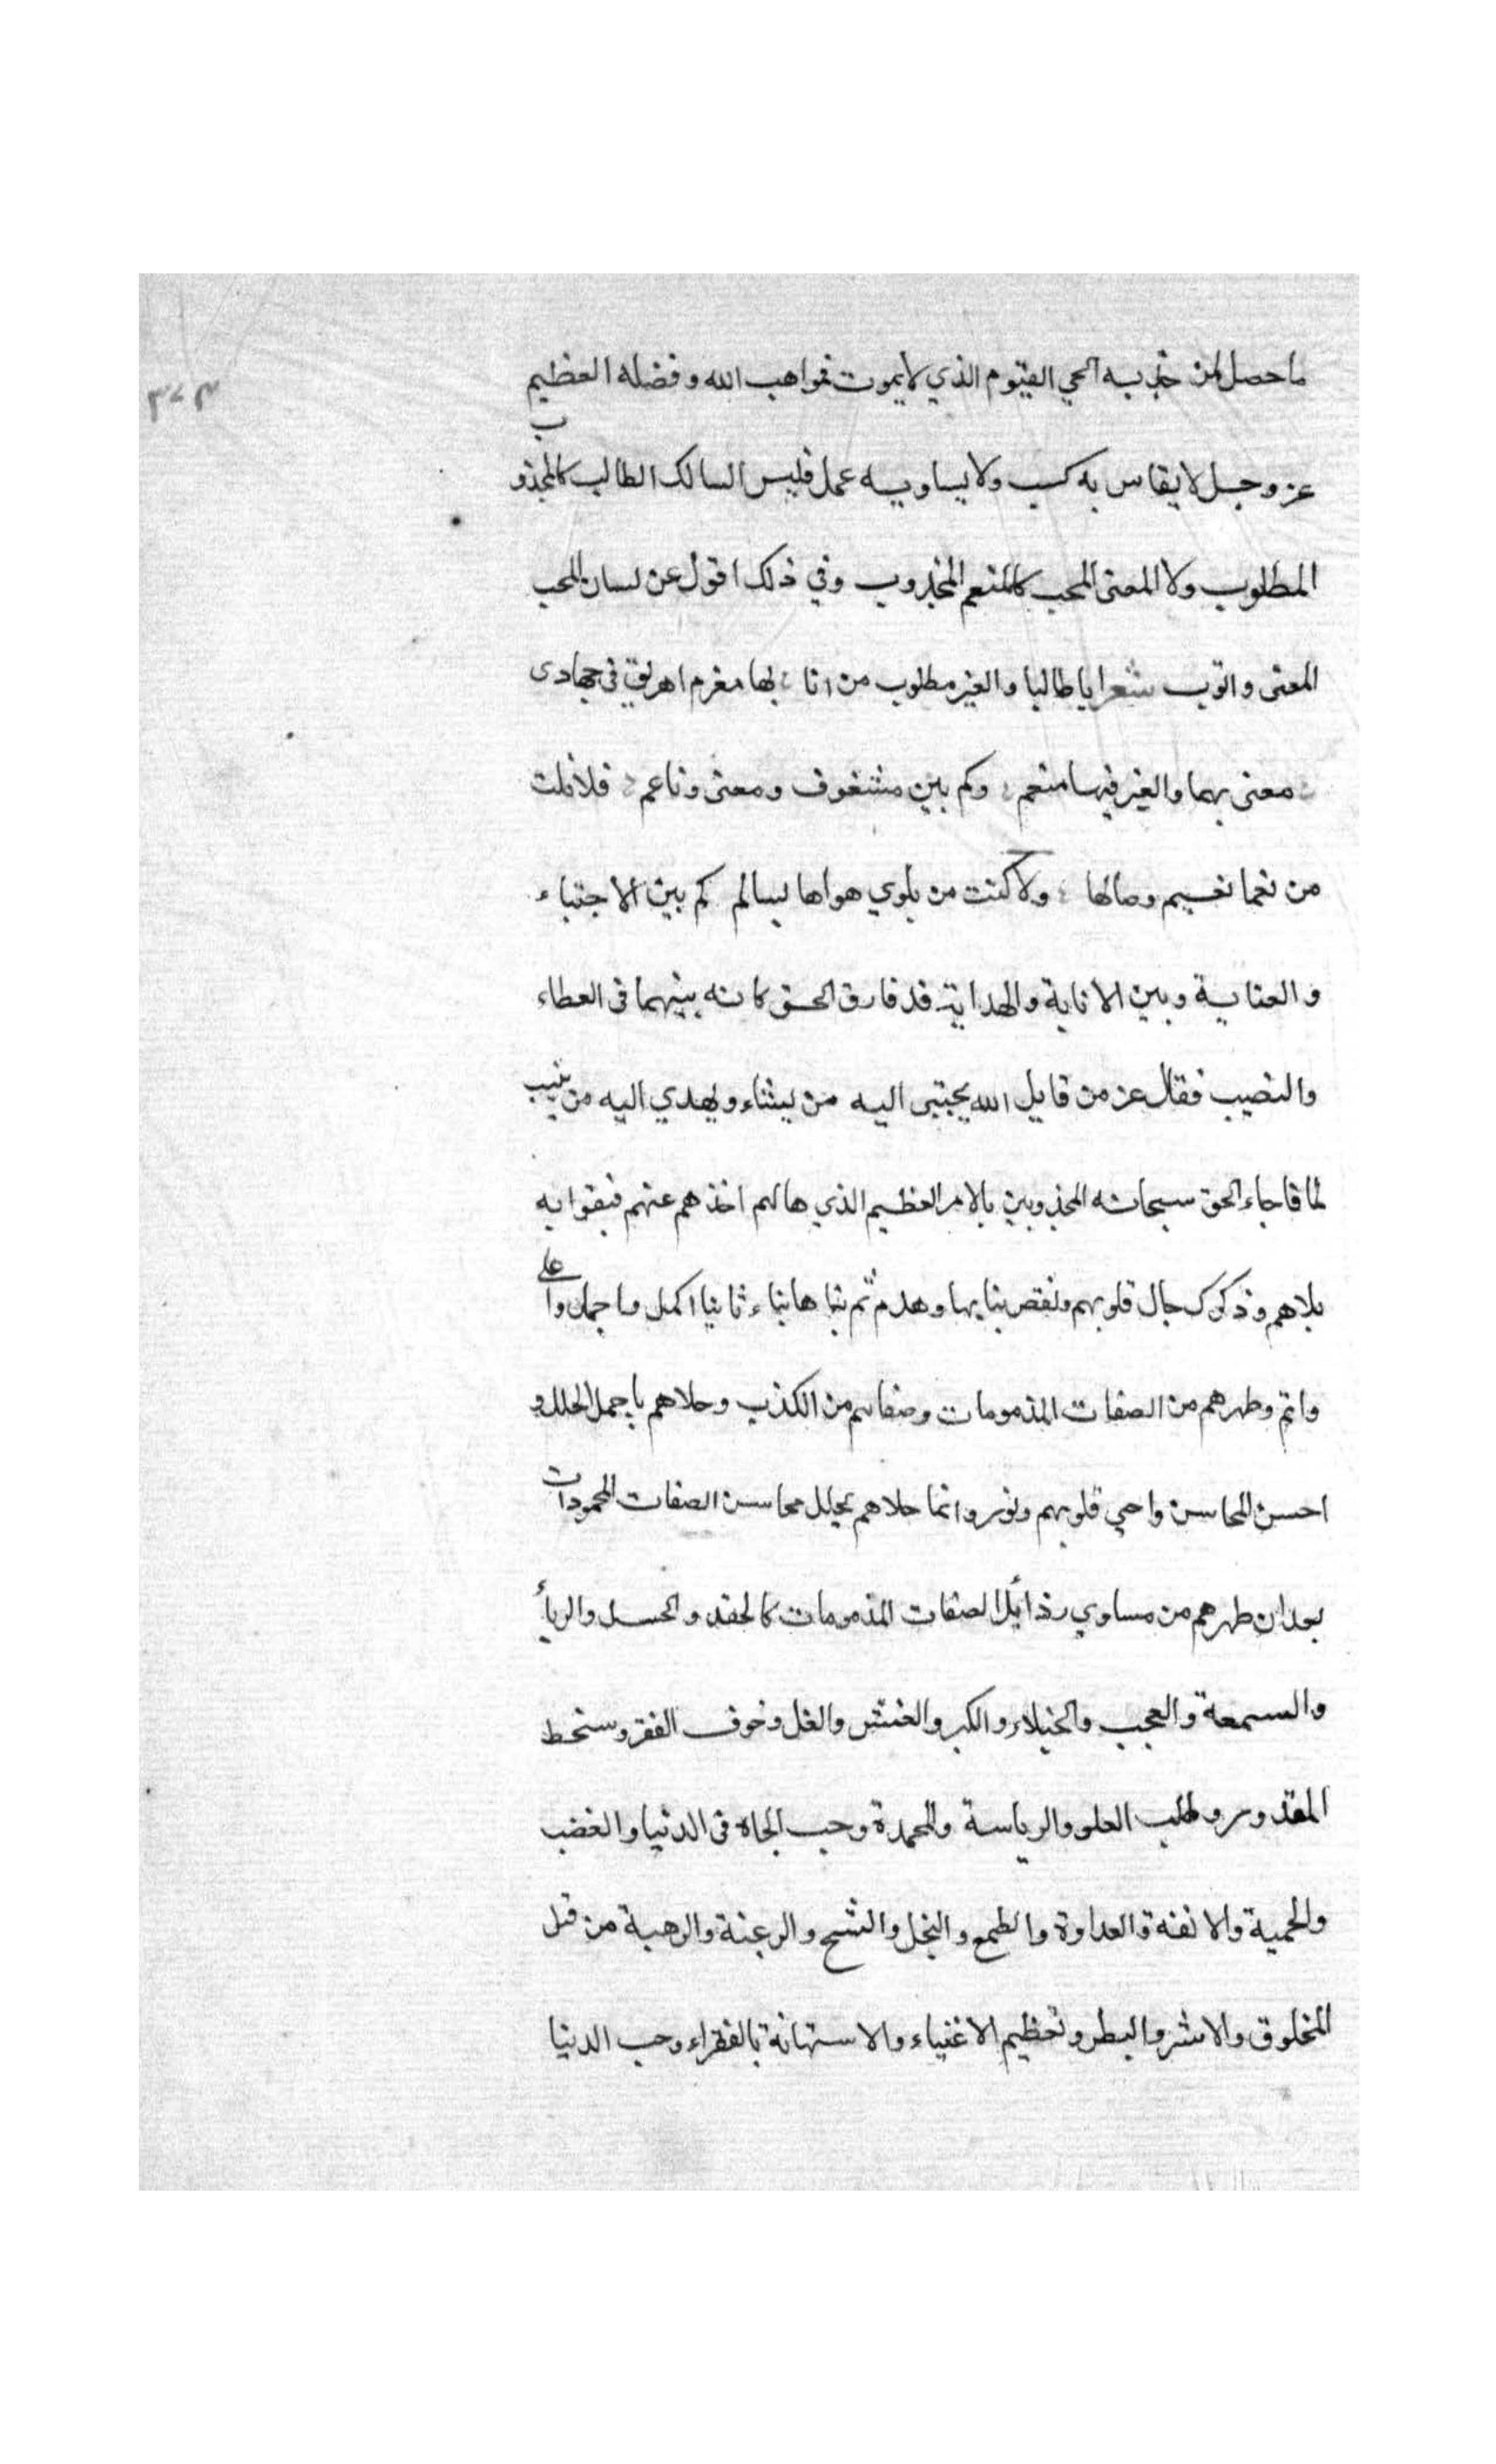 ٣٧٣
ما حصل لمن جذبه الحي القيوم الذي لا يموت فمواهب الله وفضله العظيم
عز وجل لا يقاس به كسب ولا يساويه عمل فليس السالك الطالب كالمجذوب
المطلوب ولا المعنى المحب كالمنعم المجذوب وفي ذلك اقول عن لسان المحب
المعنى واتوب شعر ايا طالبا والغير مطلوب من انا بها مغرم اهريق في جهادى
معنى بهما والغير فيها منعم وكم بين مشغوف ومعنى وناعم فلا نلت
من نعما نعيم وصالها ولا كنت من بلوي هواها بسالم كم بين الاجتباء
والعناية وبين الانابة والهداية قد فارق الحق كانه بينهما في العطاء
والنصيب فقال عز من قايل الله يجتبى اليه من يشاء ويهدي اليه من ينيب
لما فاجاء الحق سبحانه المجذوبين بالامر العظيم الذي هالهم اخذهم عنهم فبقوا به
بلاهم وذكوك جال قلوبهم ونقض بنايها وهدم ثم بناها بناء ثانيا اكمل ما جمل واعلى
واتم وطهرهم من الصفات المذمومات وصفاهم من الكذب وحلاهم باجمل الحلل و
احسن المحاسن واحي قلوبهم ونور وانما حلاهم بحلل محاسن الصفات المحمودات
بعد ان طهرهم من مساوي رذائل الصفات المذمومات كالحقد والحسد والرياء
والسمعة والعجب والخيلاء والكبر والغش والغل وخوف الفقر وسخط
المقدور وطلب العلو والرياسة والمحمدة وحب الجاه في الدنيا والغضب
والحمية والانفة والعداوة والطمع والبخل والشح والرغبة والرهبة من قبل
المخلوق والاشر والبطر وتعظيم الاغنياء والاستهانة بالفقراء وحب الدنيا